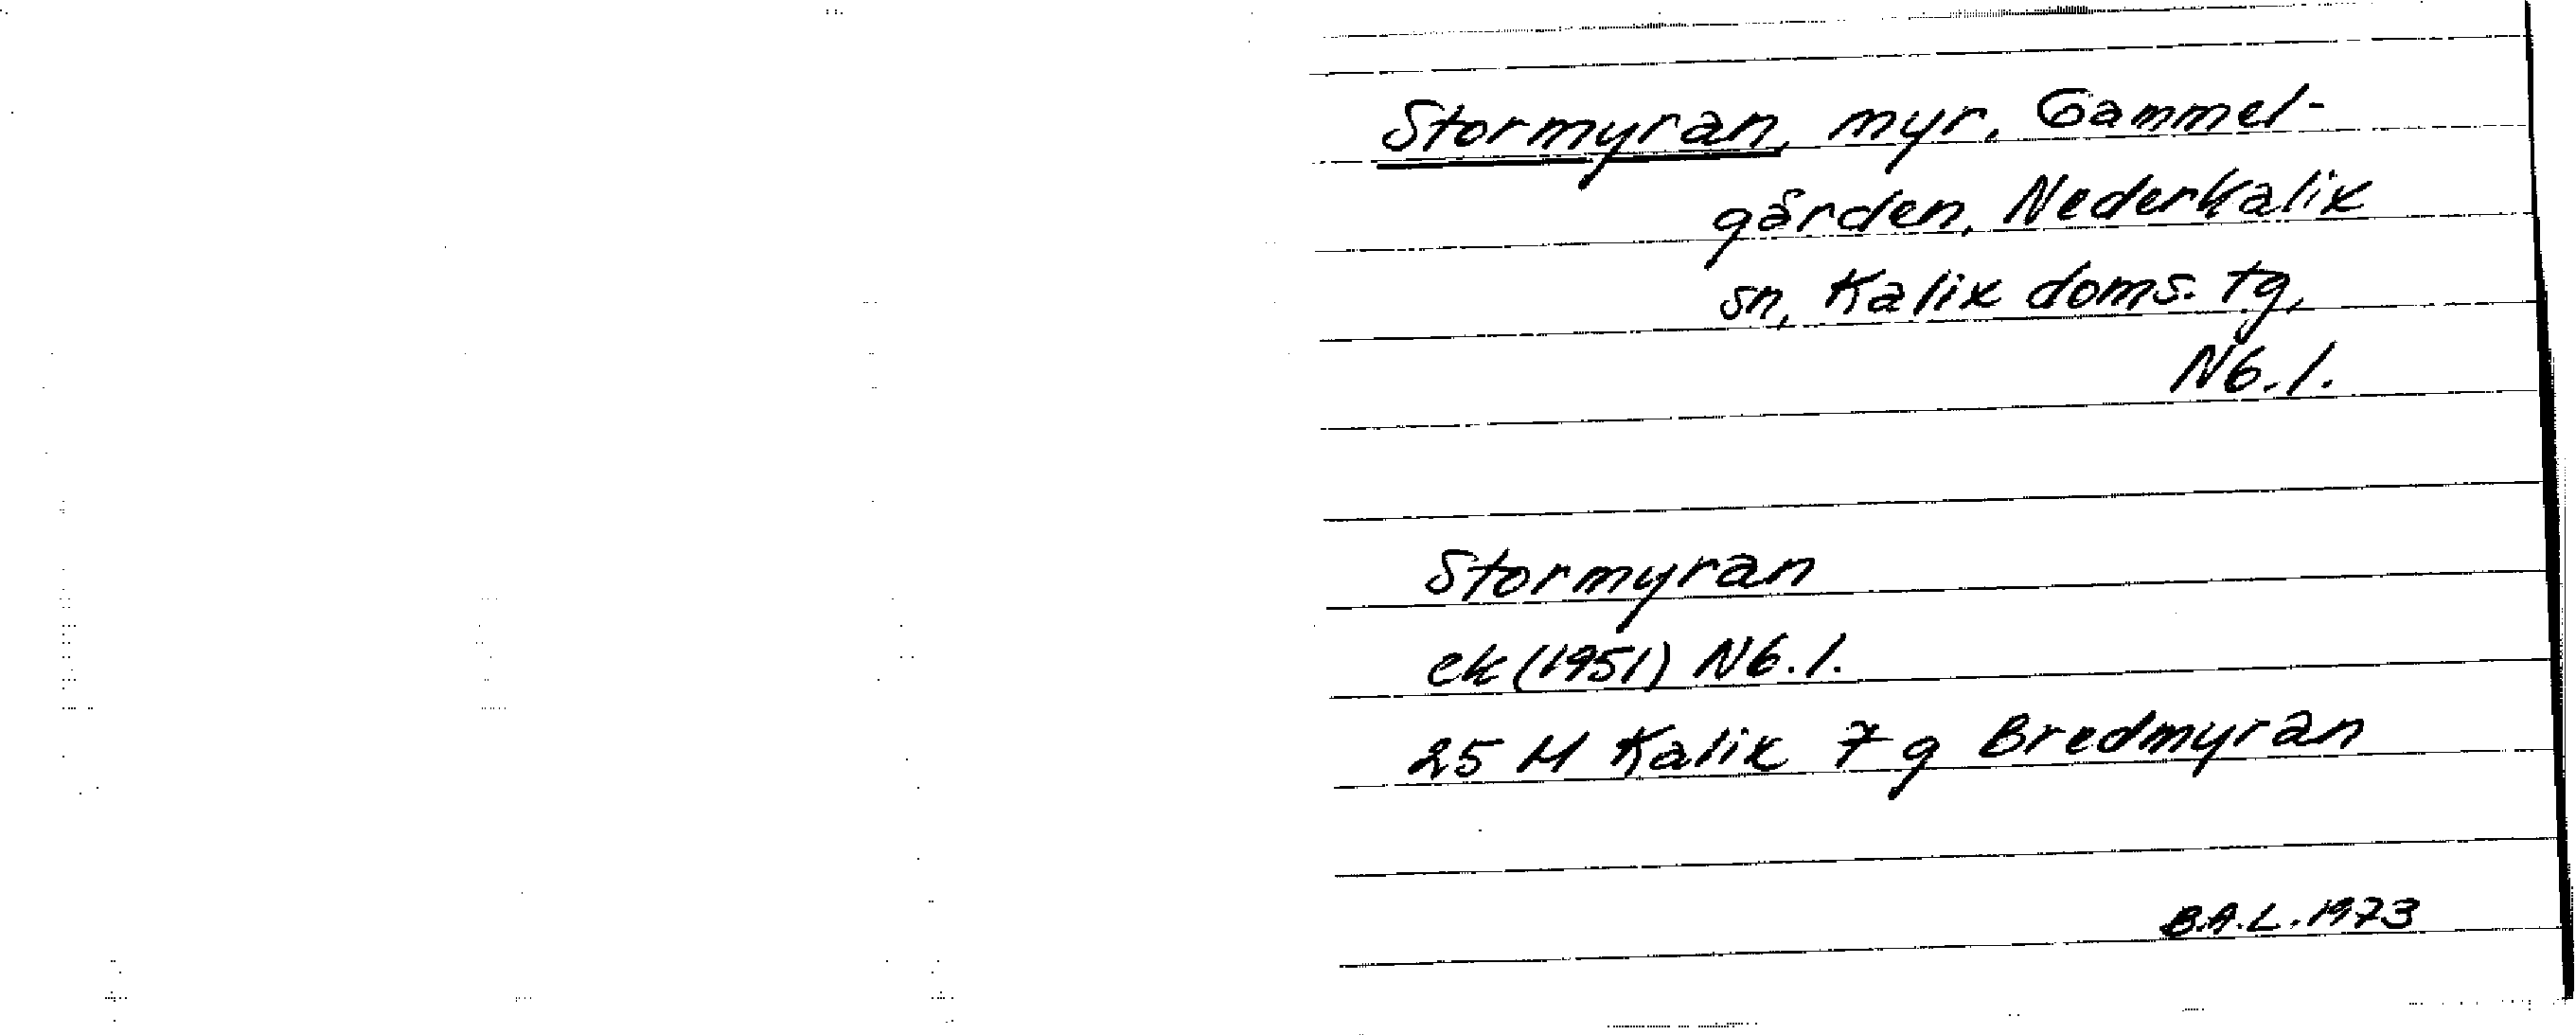 Stormyran, myr, Gammel-
gården, Nederkalix
sn, Kalix doms. tg,
Nb. l.
Stormyran
ek (1951) Nb. l.
25 M Kalix 7 g Bredmyran
B.A.L. 1973